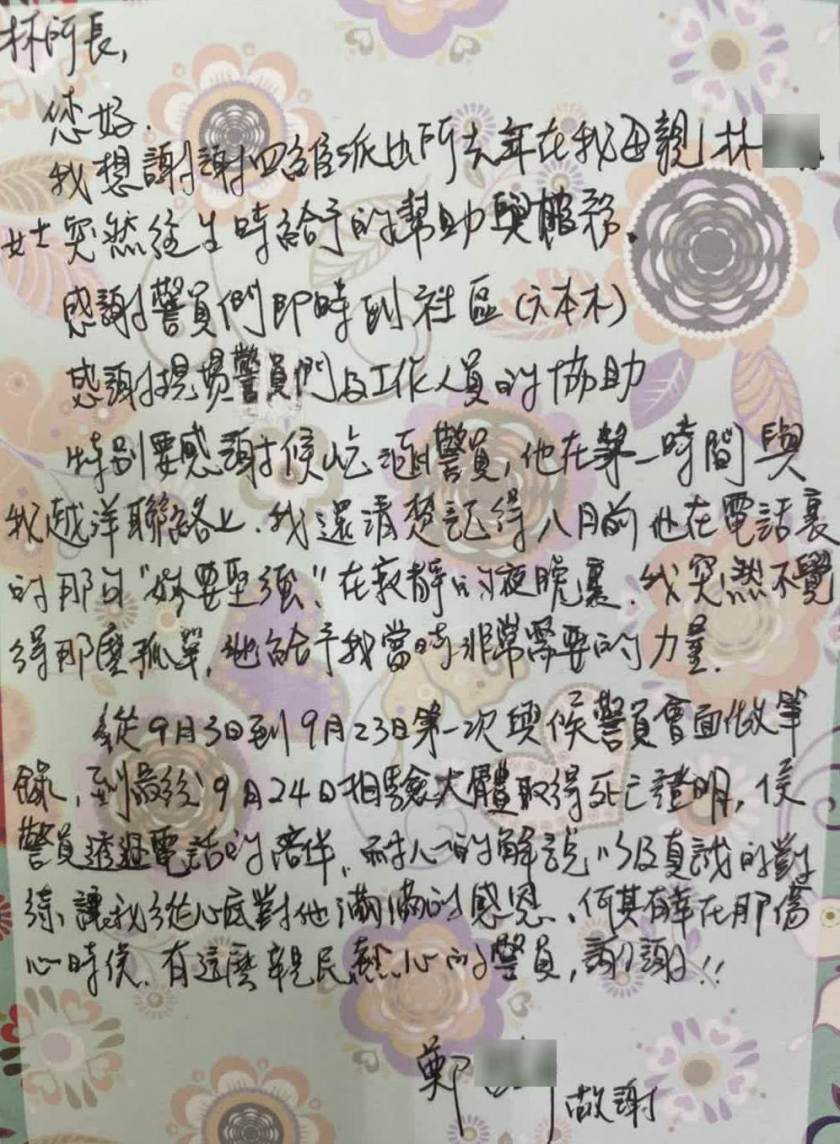 林所長,
您好.
我想謝謝四維派出所去年在我母親林
女士突然往生時給予的幫助與服務.
感謝警員們即時到社區(六本木)
感謝現場警員們及工作人員的協助
特別要感謝侯屹 警員,他在第一時間與
我越洋聯絡上.我還清楚記得八月前他在電話裏
的那句"妳要堅強".在寂靜的夜晚裏.我突然不覺
得那麼孤單,他給予我當時非常需要的力量.
從9月3日到9月23日第一次與侯警員會面做筆
錄,到最終9月24日相驗大體取得死亡證明,侯
警員透過電話的陪伴、耐心的解說以及真誠的對
待,讓我從心底對他滿滿的感恩、何其有幸在那傷
心時候.有這麼親民熱心的警員,謝謝!!
鄭
敬謝